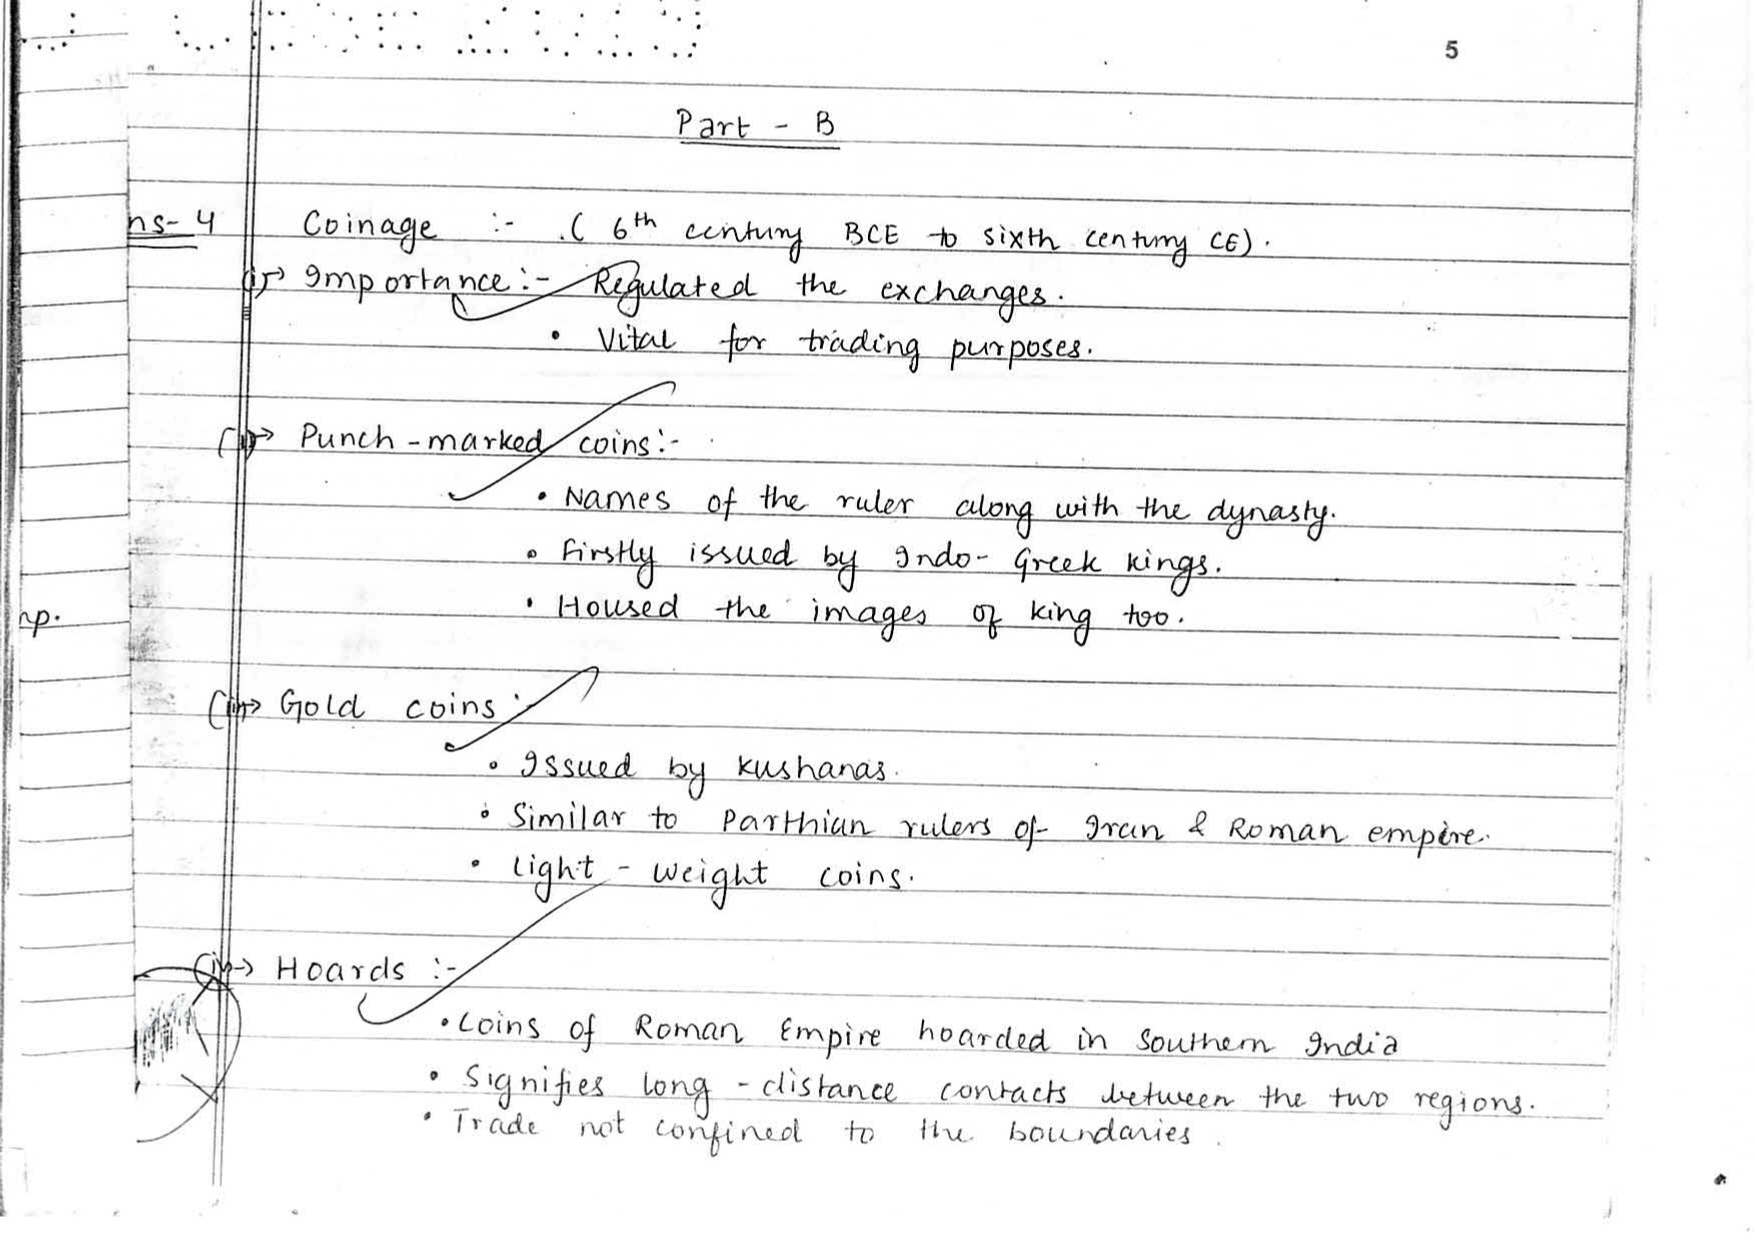 5
Part - B
ns-4 Coinage :- .( 6th century BCE to sixth century CE).
(i)→ Importance :- Regulated the exchanges.
• Vital for trading purposes.
(ii)→ Punch-marked coins :-
• Names of the ruler along with the dynasty.
• Firstly issued by Indo-Greek kings.
• Housed the images of king too.
np.
(iii)→ Gold coins :-
• Issued by kushanas.
• Similar to Parthian rulers of Iran & Roman empire.
• Light-weight coins.
(iv)→ Hoards :-
• Coins of Roman Empire hoarded in Southern India
• Signifies long-distance contacts between the two regions.
• Trade not confined to the boundaries.